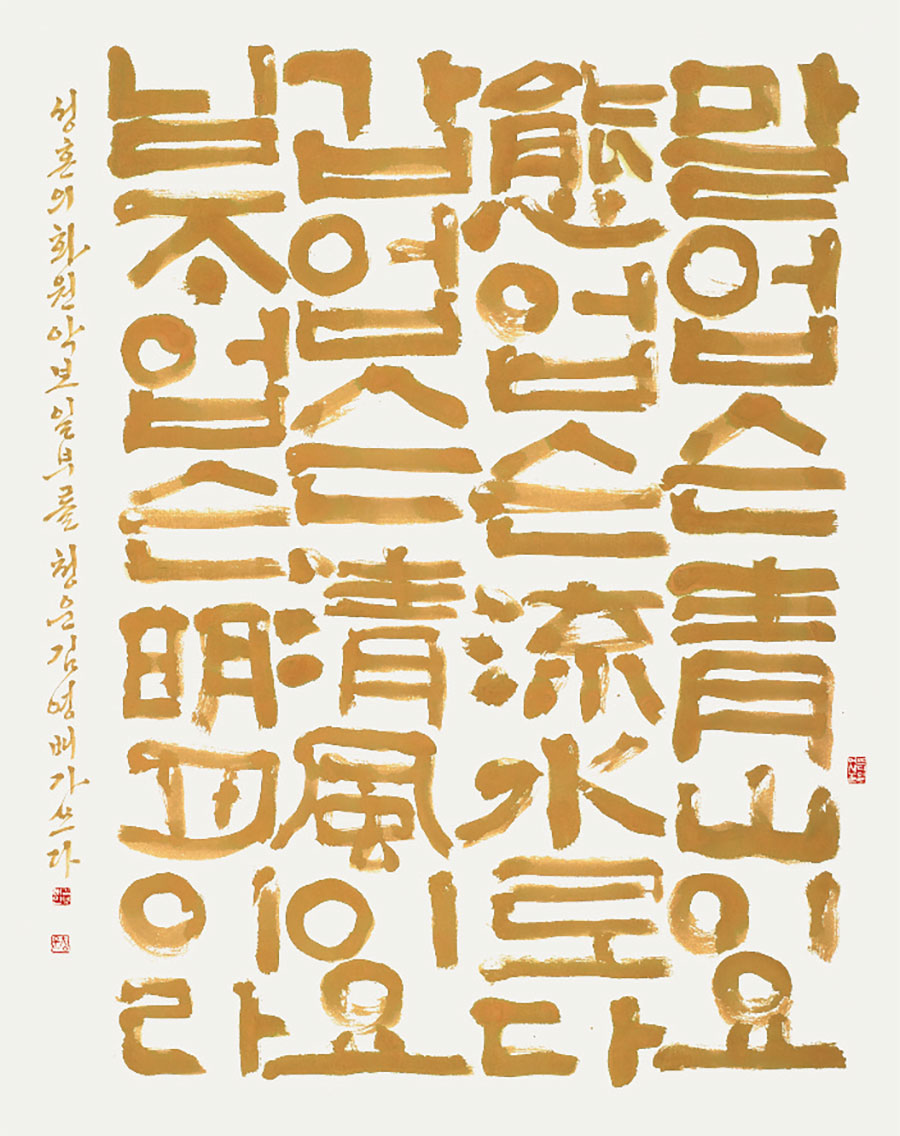 말업슨青山이요
態업슨流水로다
갑업슨清風이요
님ᄌᆞ업슨明月이라
성혼의 화원악보 일부를 청은 김영배가 쓰다